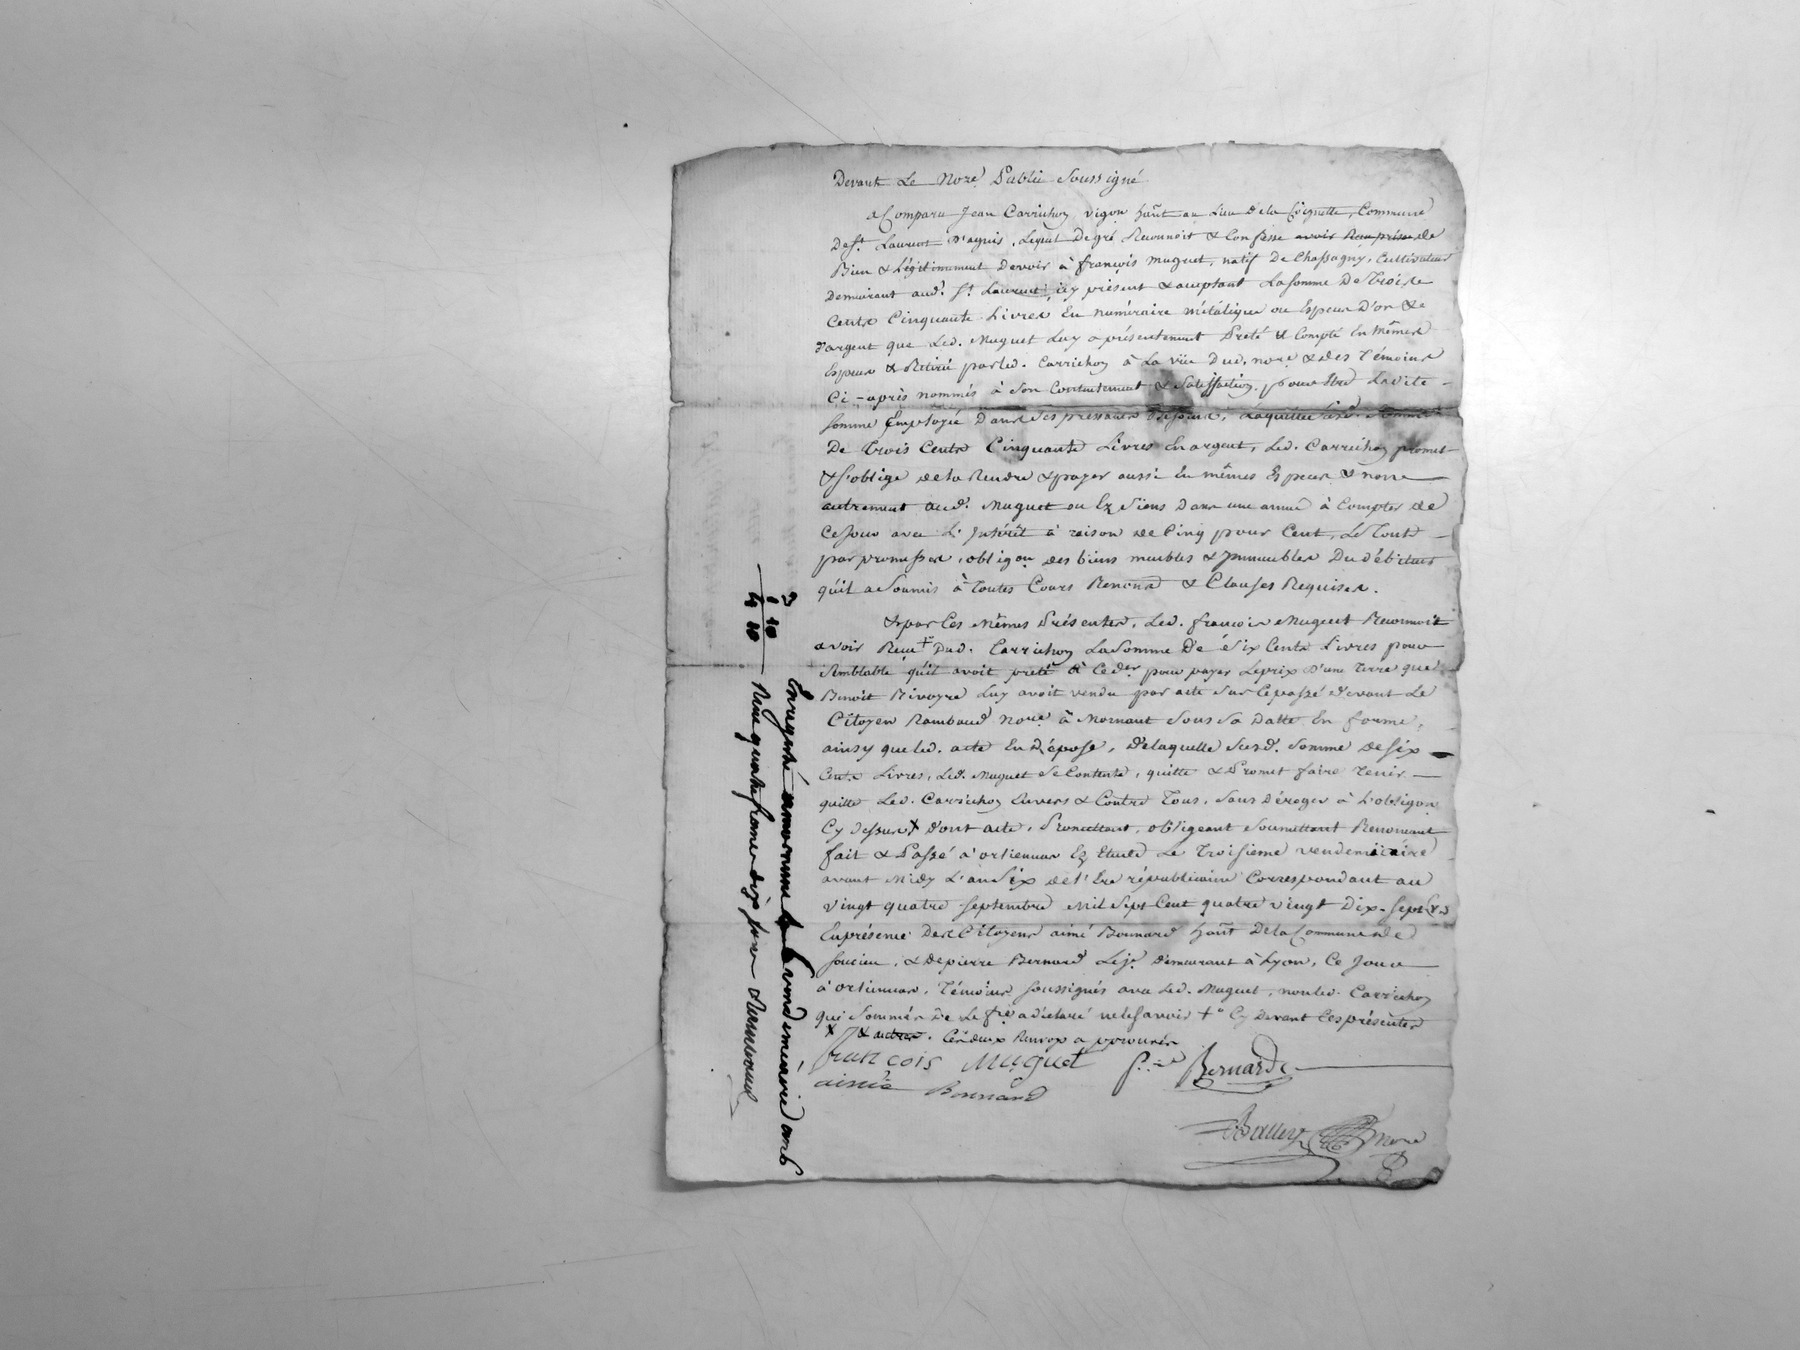 Devant Le Nore. Public Soussigné
a Comparu Jean Carrichon vigon hañt au Lieu de la Coignette, Commune
De St. Laurent D'agnis, Lequel De gré Reconnoit & Confesse de
Bien & Légitimement Devoir à françois Muguet, natif De Chassagny, Cultivateur
Demeurant aud. St. Laurent, icy présent & aceptant La somme De Trois
Cents Cinquante Livres En numéraire métalique ou Especes D'or & 
d'argent que Led. Muguet Luy a présentement Preté & Compté En Mêmes
Especes & Retiré par led. Carrichon à La vüe Dud. nore & des Témoins
Ci-après nommés à Son Contentement & Satisfaction, pour Etre Ladite
somme Employée Dans Ses pressants Besoins, Laquelle susd. Somme
De Trois Cents Cinquante Livres En argent, Led. Carrichon promet
& s'oblige de la Rendre & payer aussi En mêmes Especes & non
autrement aud. Muguet ou Ez Siens Dans une année à Compter de
Ce Jour avec L'Intérêt à raison de Cinq pour Cent, Le Tout
par promesses, obligon. des biens meubles & Immeubles Du débiteur
qu'il a Soumis à Toutes Cours Renond. & Clauses Requises.
& par Ces Mêmes Présentes, Led. francois Muguet Reconnoit
avoir Reçu + Dud. Carrichon La Somme De Six Cents Livres pour
Semblable qu'il avoit preté à Ceder. pour payer Le prix D'une Terre que
Benoit Rivoyre Luy avoit vendu par acte sur Ce passé devant Le
Citoyen Rambaud nore à Mornant Sous Sa Datte En forme,
ainsy que led. acte En Dépose, De laquelle Susd. Somme de Six
Cents Livres, Led. Muguet Se Contente, quitte & Promet faire Tenir
quitte Led. Carrichon Envers & Contre Tous, Sans Déroger à L'obligon
Cy Dessus X Dont acte, Promettant, obligeant Soumettant Renonceant
fait & Passé à orlienas Ez Etude Le Troisieme vendemiaire
avant Midy L'an Six de L'Ere républicaine Correspondant au
vingt quatre septembre Mil Sept Cent quatre vingt Dix-Sept (v.s)
En présence Des Citoyens aimé Bonnard hañt De la Commune de
soucieu, & de pierre Bernard Leje. Demeurant à Lyon, Ce Jour
à orlienas, Témoins soussignés avec Led. Muguet, non led. Carrichon
qui Sommés De Le fre a déclaré ne le savoir + Cy Devant Ces présentes
X & autres. Ces deux Renvox aprouvés
françois Muguet Bernard
aimé Bonnard
nore
Enregistré à mornant Le 6 vendemiaire an 6
Reçu quatre francs dix sous Rambaud
3
1 10
4 10